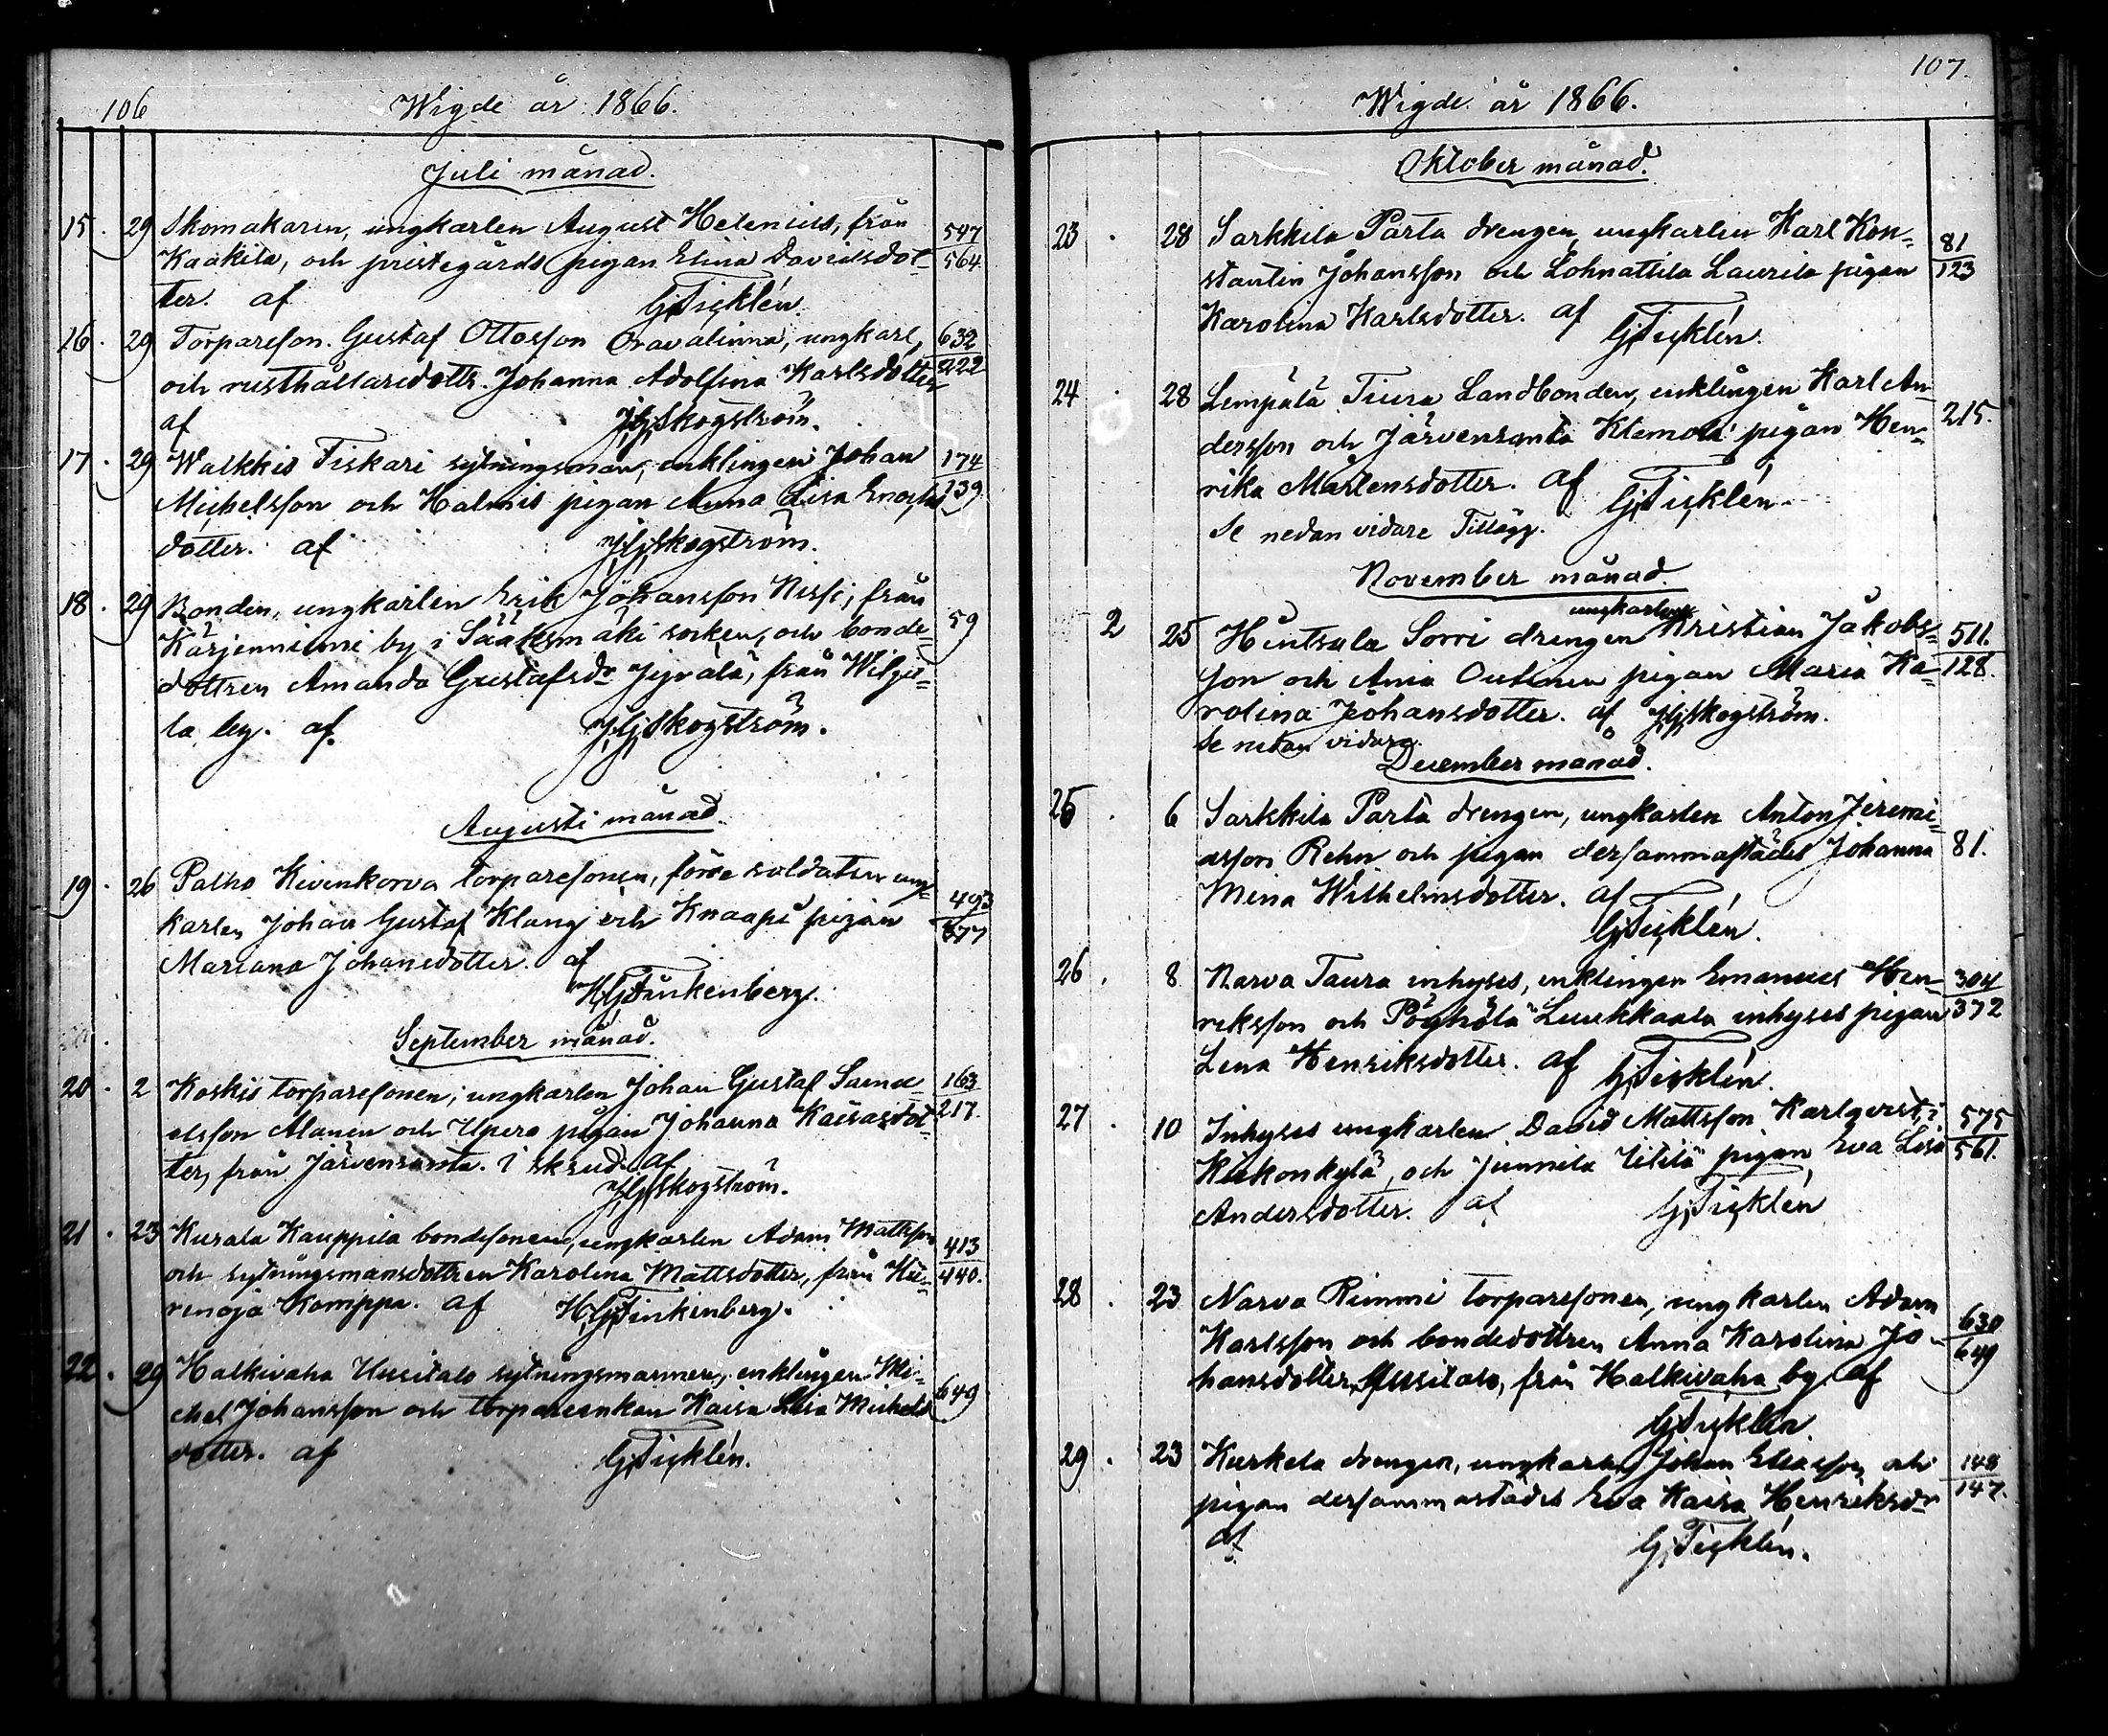 106
Wigde år 1866.
Juli månad.
15. 29 Skomakaren, ungkarlen August Helenius, från 547
Kaakila, och prestegårds pigan Elina Davidsdot- 564
ter. af G. Ticklén.
16. 29 Torparesson. Gustaf Ottosson Oravalinna, ungkarl, 632
och rusthållaredottr. Johanna Adolfina Karlsdotter 222
af J. G. Skogström.
17. 29 Walkkis Fiskari sytningsman, enklingen Johan 174
Michelsson och Halmis pigan Anna Lisa Enochs 139
dotter. af J. G. Skogström.
18. 29 Bonden, ungkarlen Erik Johansson Nissi, från 59
Kärjenniemi by i Sääksmäki socken, och bonde-
dottren Amanda Gustafsdr Jyvälä, från Wilja-
la by. af. J. G. Skogström.
Augusti månad.
19. 26 Palho Kivenkorva torparesonen, förre soldaten ung- 493
karlen Johan Gustaf Klang och Knaapi pigan 577
Mariana Johansdotter. af
H. G. Finkenberg.
September månad.
20. 2 Koskis torparesonen, ungkarlen Johan Gustaf Samu- 163
elsson Alanen och Upero pigan Johanna Kaisasdot- 217.
ter, från Järvensanta. i skrud. af
J. G. Skogström.
21. 23 Kurala Kauppila bondesonen, ungkarlen Adam Mattsson 413
och sytningsmansdottren Karolina Mattsdotter, från Hu- 440.
renoja Komppa. af H. G. Finkenberg.
22. 29 Halkivaha Uusitalo sytningsmannen, enklingen Mi- 649
chel Johansson och torpareenkan Kaisa Lisa Michels
dotter. af G. Ticklén.
107.
Wigde år 1866.
Oktober månad.
23. 28 Sarkkila Parta drengen, ungkarlen Karl Kon- 81
stantin Johansson och Lohnattila Laurila pigan 123
Karolina Karlsdotter. af G. Ticklén.
24. 28 Lempälä Tiura Landbonden, enklingen Karl An- 215.
dersson och Järvensanta Klemola pigan Hen-
rika Mårtensdotter. af G. Ticklén.
Se nedan vidare Tillägg.
November månad.
ungkarlen
2 25 Huntsala Sorri drengen Kristian Jakobs- 511.
son och Ania Outinen pigan Maria Ka- 128.
rolina Johansdotter. af J. G. Skogström.
Se nedan vidare.
December månad.
25. 6 Sarkkila Parta drengen, ungkarlen Anton Jeremi- 81.
asson Rehn och pigan dersammastädes Johanna
Mina Wilhelmsdotter. af
G. Ticklén.
26. 8 Narva Taura inhyses, enklingen Emanuel Hen- 304
riksson och Pöyhölä Luukkaala inhyses pigan 372
Lena Henriksdotter. af G. Ticklén.
27. 10 Inhyses ungkarlen David Mattsson Karlqvist, i 575
Kirkonkylä, och Junnila Ylilä pigan Eva Lisa 561.
Andersdotter. af G. Ticklén
28. 23 Narva Rimmi torparesonen, ungkarlen Adam 630
Karlsson och bondedottren Anna Karolina Jo- 649
hansdotter Uusitalo, från Halkivaha by. af
G. Ticklén.
29. 23 Kurkela drengen, ungkarlen Johan Eliasson och 148
pigan dersammastädes Eva Kaisa Henriksdr 147.
af G. Ticklén.